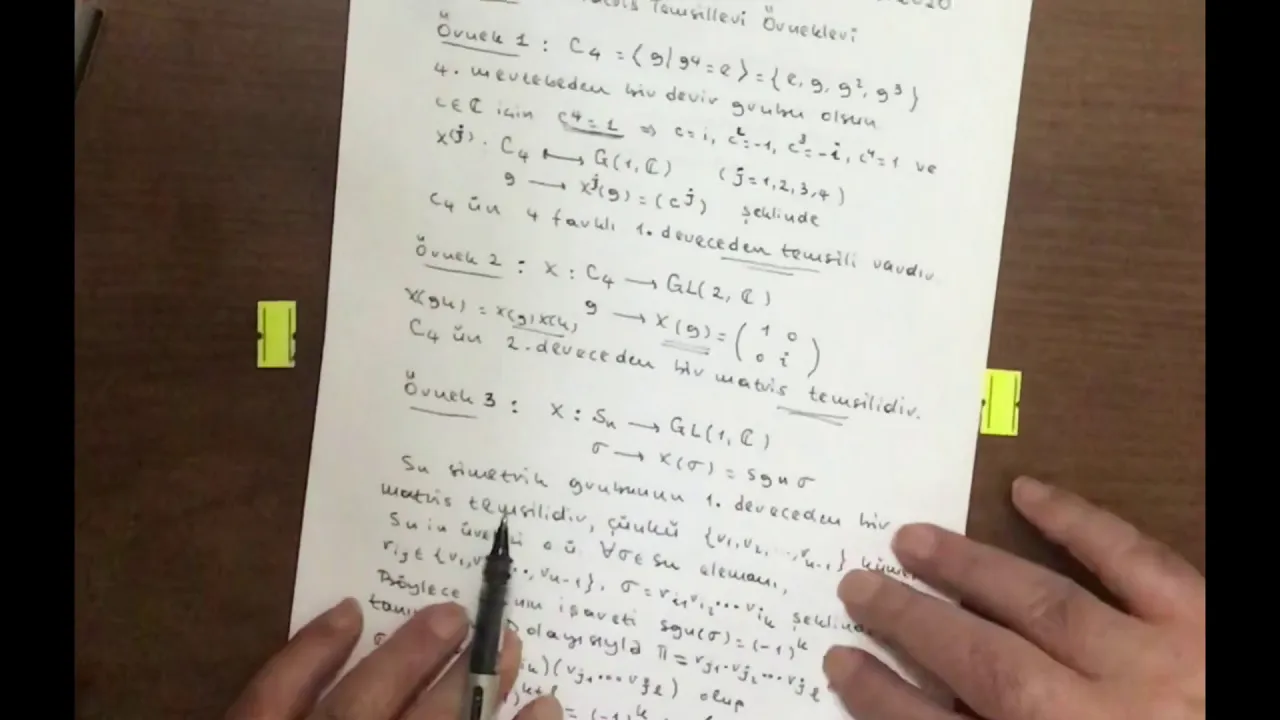 Temsilleri Örnekleri
Örnek 1 : C₄ = ⟨g | g⁴ = e⟩ = {e, g, g², g³}
4. mertebeden bir devir grubu olsun.
c∈ℂ için c⁴=1 ⇒ c=i, c²=-1, c³=-i, c⁴=1 ve
X⁽ʲ⁾: C₄ ⟼ G(1,ℂ) (j=1,2,3,4)
g ⟶ Xʲ(g) = (cʲ) şeklinde
C₄ ün 4 farklı 1. dereceden temsili vardır.
Örnek 2 : X : C₄ ⟶ GL(2,ℂ)
X(gh) = X(g)X(h) g ⟶ X(g) = (1 0
0 i)
C₄ ün 2. dereceden bir matris temsilidir.
Örnek 3 : X : Sₙ ⟶ GL(1,ℂ)
σ ⟶ X(σ) = sgn σ
Sₙ simetrik grubunun 1. dereceden bir
matris temsilidir, çünkü {r₁,r₂,...,rₙ₋₁}
Sₙ in ∀σ∈Sₙ elemanı,
σ = rᵢ₁rᵢ₂...rᵢₖ
Böylece işareti sgn(σ) = (-1)ᵏ
dolayısıyla π = rⱼ₁.rⱼ₂...rⱼℓ
)(rⱼ₁...rⱼℓ) olup
= (-1)ᵏ